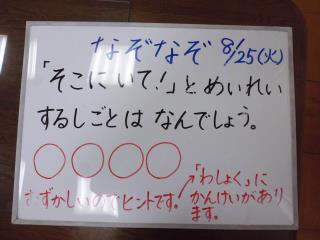 なぞなぞ 8/25(火)
「そこにいて!」とめいれい
するしごとは なんでしょう。
○○○○
むずかしいのでヒントです。
「わしょく」に
かんけいがあり
ます。